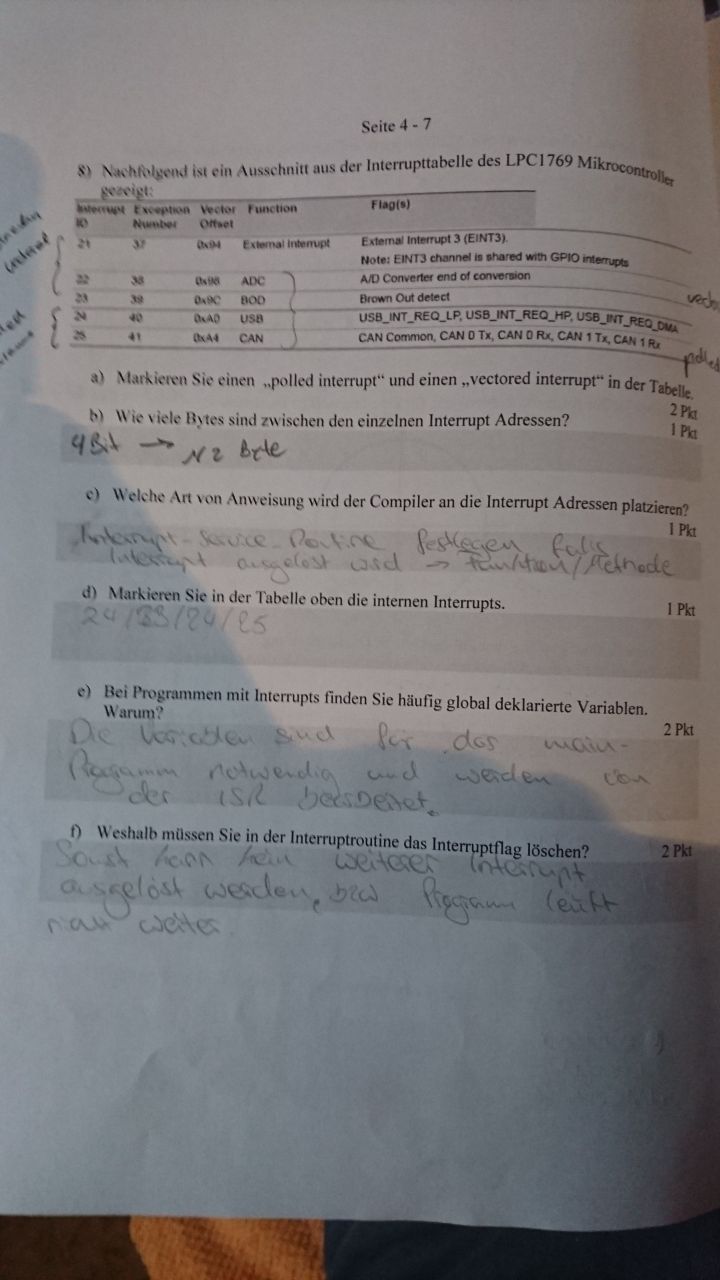 Seite 4 - 7
8) Nachfolgend ist ein Ausschnitt aus der Interrupttabelle des LPC1769 Mikrocontroller
gezeigt:
Interrupt ID Exception Number Vector Offset Function Flag(s)
21 37 0x94 External Interrupt External Interrupt 3 (EINT3).
Note: EINT3 channel is shared with GPIO interrupts
22 38 0x98 ADC A/D Converter end of conversion
23 39 0x9C BOD Brown Out detect
24 40 0xA0 USB USB_INT_REQ_LP, USB_INT_REQ_HP, USB_INT_REQ_DMA
25 41 0xA4 CAN CAN Common, CAN 0 Tx, CAN 0 Rx, CAN 1 Tx, CAN 1 Rx
polled
a) Markieren Sie einen „polled interrupt“ und einen „vectored interrupt“ in der Tabelle.
2 Pkt
b) Wie viele Bytes sind zwischen den einzelnen Interrupt Adressen?
1 Pkt
4 Bit → 2 Byte
c) Welche Art von Anweisung wird der Compiler an die Interrupt Adressen platzieren?
1 Pkt
Interrupt-Service-Routine festlegen falls
Interrupt ausgelöst wird → Funktion/Methode
d) Markieren Sie in der Tabelle oben die internen Interrupts.
1 Pkt
e) Bei Programmen mit Interrupts finden Sie häufig global deklarierte Variablen.
Warum?
2 Pkt
Die Variablen sind für das main-
Programm notwendig und werden von
der ISR bearbeitet.
f) Weshalb müssen Sie in der Interruptroutine das Interruptflag löschen?
2 Pkt
Sonst kann kein weiterer Interrupt
ausgelöst werden, bzw Programm läuft
weiter.